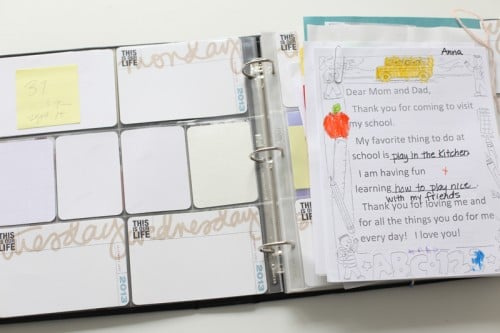 THIS
IS OUR
LIFE
monday
2013
31
THIS
IS OUR
LIFE
tuesday
2013
THIS
IS OUR
LIFE
wednesday
2013
Anna
Dear Mom and Dad,
Thank you for coming to visit
my school.
My favorite thing to do at
school is play in the kitchen
I am having fun
learning how to play nice
with my friends
Thank you for loving me and
for all the things you do for me
every day! I love you!
ABC 12